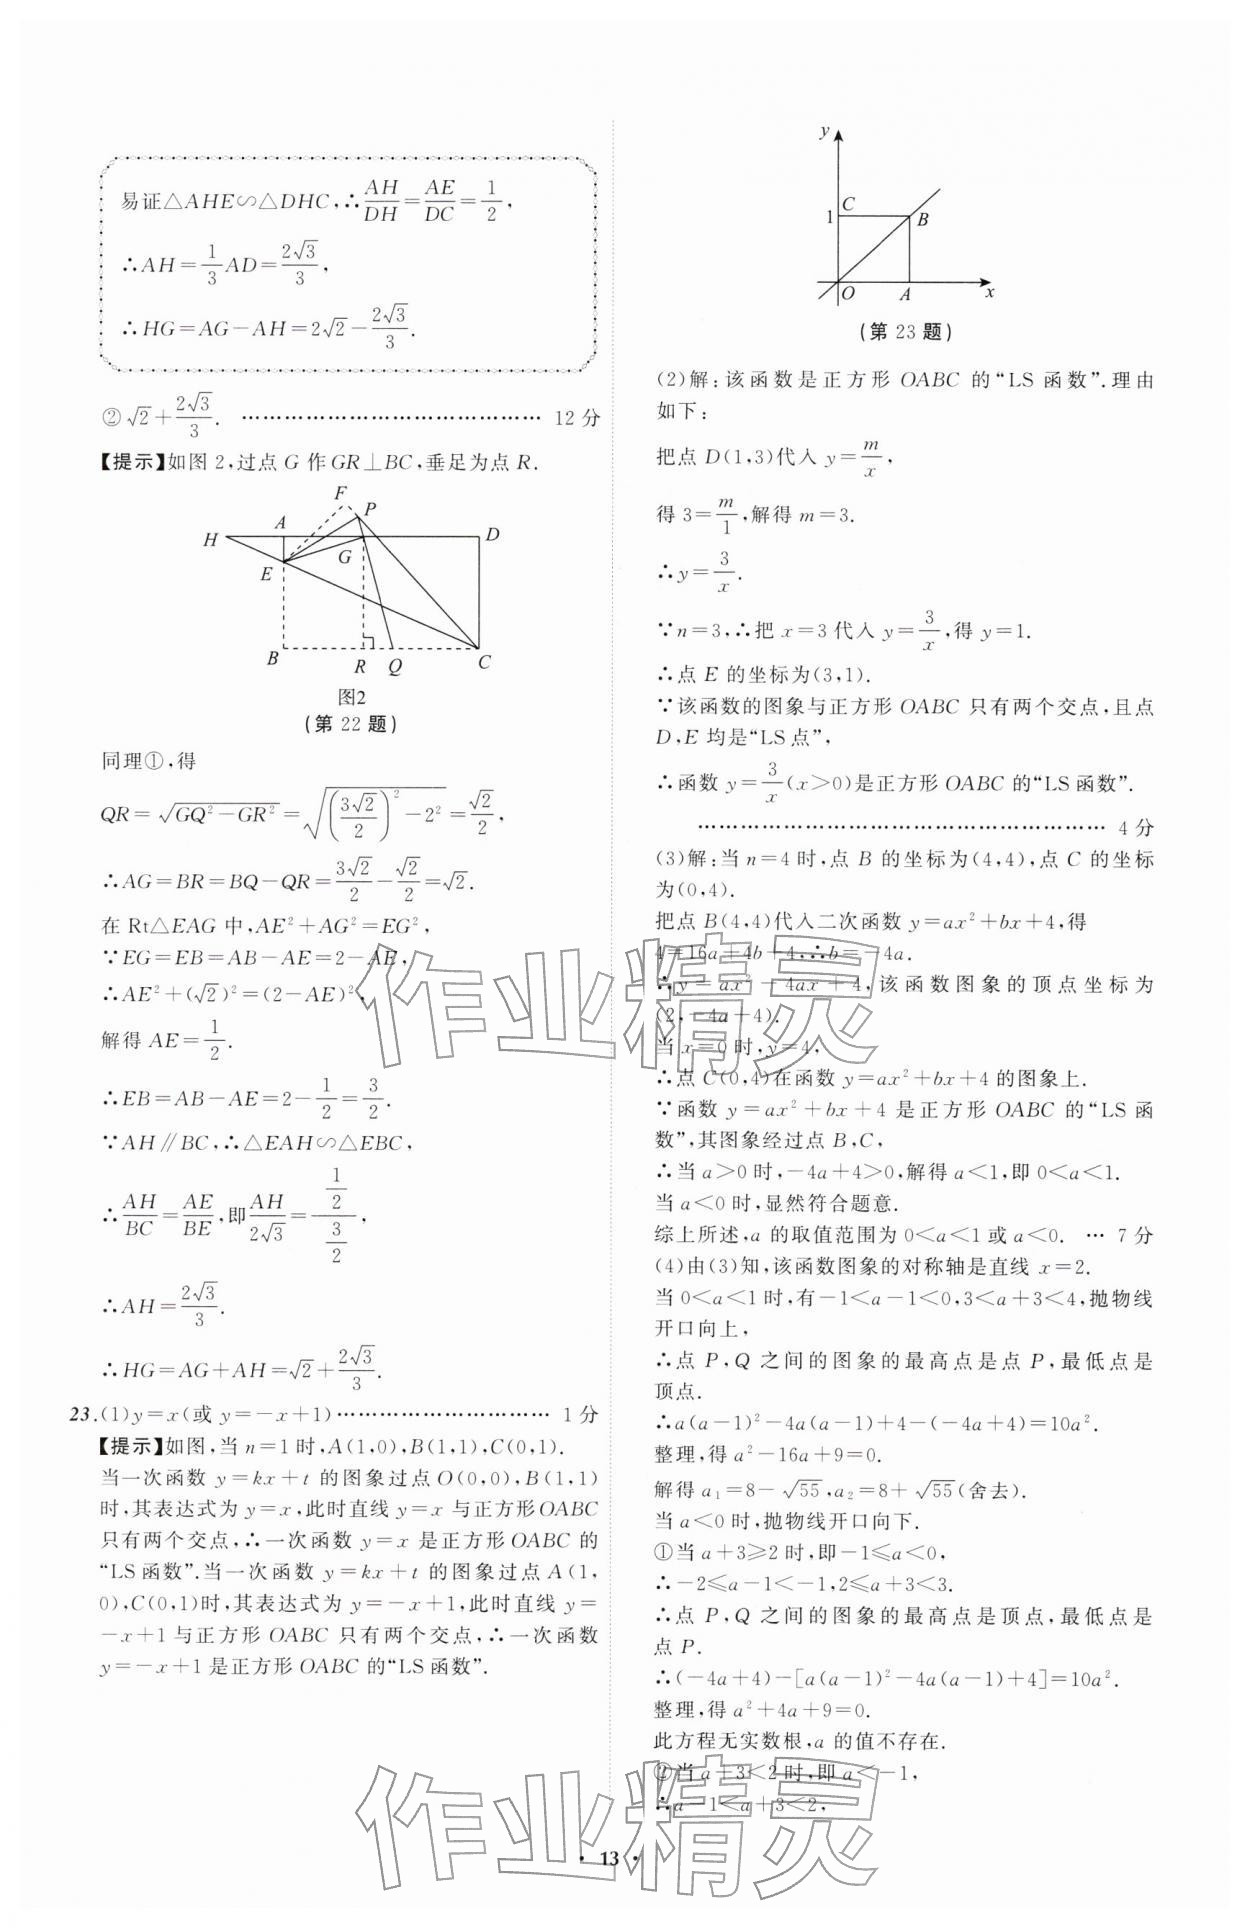 易证△AHE∽△DHC,∴AH/DH=AE/DC=1/2,
∴AH=1/3AD=2√3/3,
∴HG=AG-AH=2√2-2√3/3.
②√2+2√3/3. …………………………………… 12分
【提示】如图2,过点G作GR⊥BC,垂足为点R.
F
P
H
A
D
G
E
B
R
Q
C
图2
(第22题)
同理①,得
QR=√(GQ²-GR²)=√((3√2/2)²-2²)=√2/2,
∴AG=BR=BQ-QR=3√2/2-√2/2=√2.
在Rt△EAG中,AE²+AG²=EG²,
∵EG=EB=AB-AE=2-AE,
∴AE²+(√2)²=(2-AE)²,
解得AE=1/2.
∴EB=AB-AE=2-1/2=3/2.
∵AH∥BC,∴△EAH∽△EBC,
∴AH/BC=AE/BE,即AH/2√3=(1/2)/(3/2),
∴AH=2√3/3.
∴HG=AG+AH=√2+2√3/3.
23.(1)y=x(或y=-x+1)………………………… 1分
【提示】如图,当n=1时,A(1,0),B(1,1),C(0,1).
当一次函数y=kx+t的图象过点O(0,0),B(1,1)
时,其表达式为y=x,此时直线y=x与正方形OABC
只有两个交点,∴一次函数y=x是正方形OABC的
“LS函数”.当一次函数y=kx+t的图象过点A(1,
0),C(0,1)时,其表达式为y=-x+1,此时直线y=
-x+1与正方形OABC只有两个交点,∴一次函数
y=-x+1是正方形OABC的“LS函数”.
y
1
C
B
O
A
x
(第23题)
(2)解:该函数是正方形OABC的“LS函数”.理由
如下:
把点D(1,3)代入y=m/x,
得3=m/1,解得m=3.
∴y=3/x.
∵n=3,∴把x=3代入y=3/x,得y=1.
∴点E的坐标为(3,1).
∵该函数的图象与正方形OABC只有两个交点,且点
D,E均是“LS点”,
∴函数y=3/x(x>0)是正方形OABC的“LS函数”.
………………………………………………… 4分
(3)解:当n=4时,点B的坐标为(4,4),点C的坐标
为(0,4).
把点B(4,4)代入二次函数y=ax²+bx+4,得
4=16a+4b+4,∴b=-4a.
∴y=ax²-4ax+4,该函数图象的顶点坐标为
(2,-4a+4).
当x=0时,y=4,
∴点C(0,4)在函数y=ax²+bx+4的图象上.
∵函数y=ax²+bx+4是正方形OABC的“LS函
数”,其图象经过点B,C,
∴当a>0时,-4a+4>0,解得a<1,即0<a<1.
当a<0时,显然符合题意.
综上所述,a的取值范围为0<a<1或a<0. … 7分
(4)由(3)知,该函数图象的对称轴是直线x=2.
当0<a<1时,有-1<a-1<0,3<a+3<4,抛物线
开口向上,
∴点P,Q之间的图象的最高点是点P,最低点是
顶点.
∴a(a-1)²-4a(a-1)+4-(-4a+4)=10a².
整理,得a²-16a+9=0.
解得a₁=8-√55,a₂=8+√55(舍去).
当a<0时,抛物线开口向下.
①当a+3≥2时,即-1≤a<0,
∴-2≤a-1<-1,2≤a+3<3.
∴点P,Q之间的图象的最高点是顶点,最低点是
点P.
∴(-4a+4)-[a(a-1)²-4a(a-1)+4]=10a².
整理,得a²+4a+9=0.
此方程无实数根,a的值不存在.
②当a+3<2时,即a<-1,
∴a-1<a+3<2,
作业精灵
作业精灵
· 13 ·